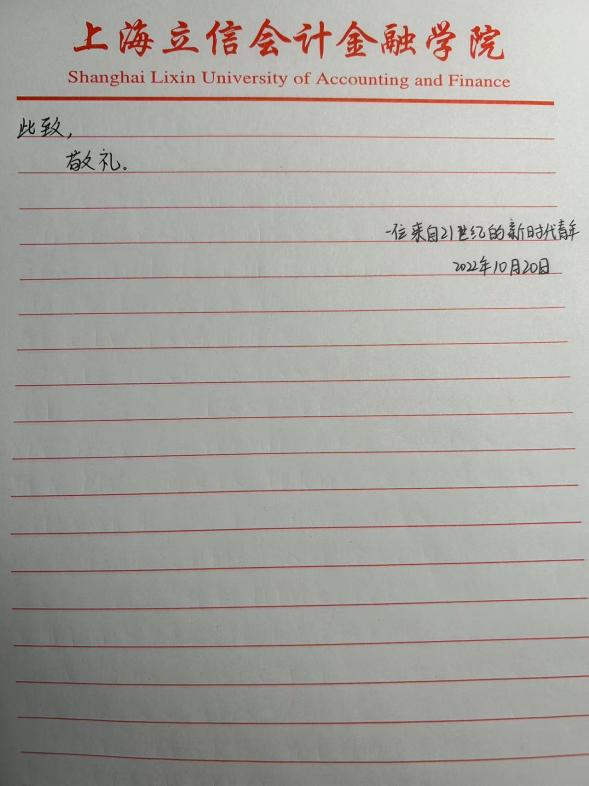 上海立信会计金融学院
Shanghai Lixin University of Accounting and Finance
此致,
敬礼.
一位来自21世纪的新时代青年
2022年10月20日